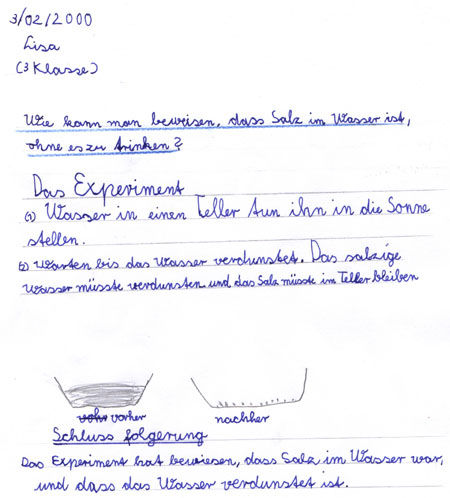 3/02/2000
Lisa
(3 Klasse)
Wie kann man beweisen, dass Salz im Wasser ist,
ohne es zu trinken?
Das Experiment
(1) Wasser in einen Teller tun ihn in die Sonne
stellen.
(2) Warten bis das Wasser verdunstet. Das salzige
Wasser müsste verdunsten und das Salz müsste im Teller bleiben
vorher
nachher
Schluss folgerung
Das Experiment hat bewiesen, dass Salz im Wasser war,
und dass das Wasser verdunstet ist.